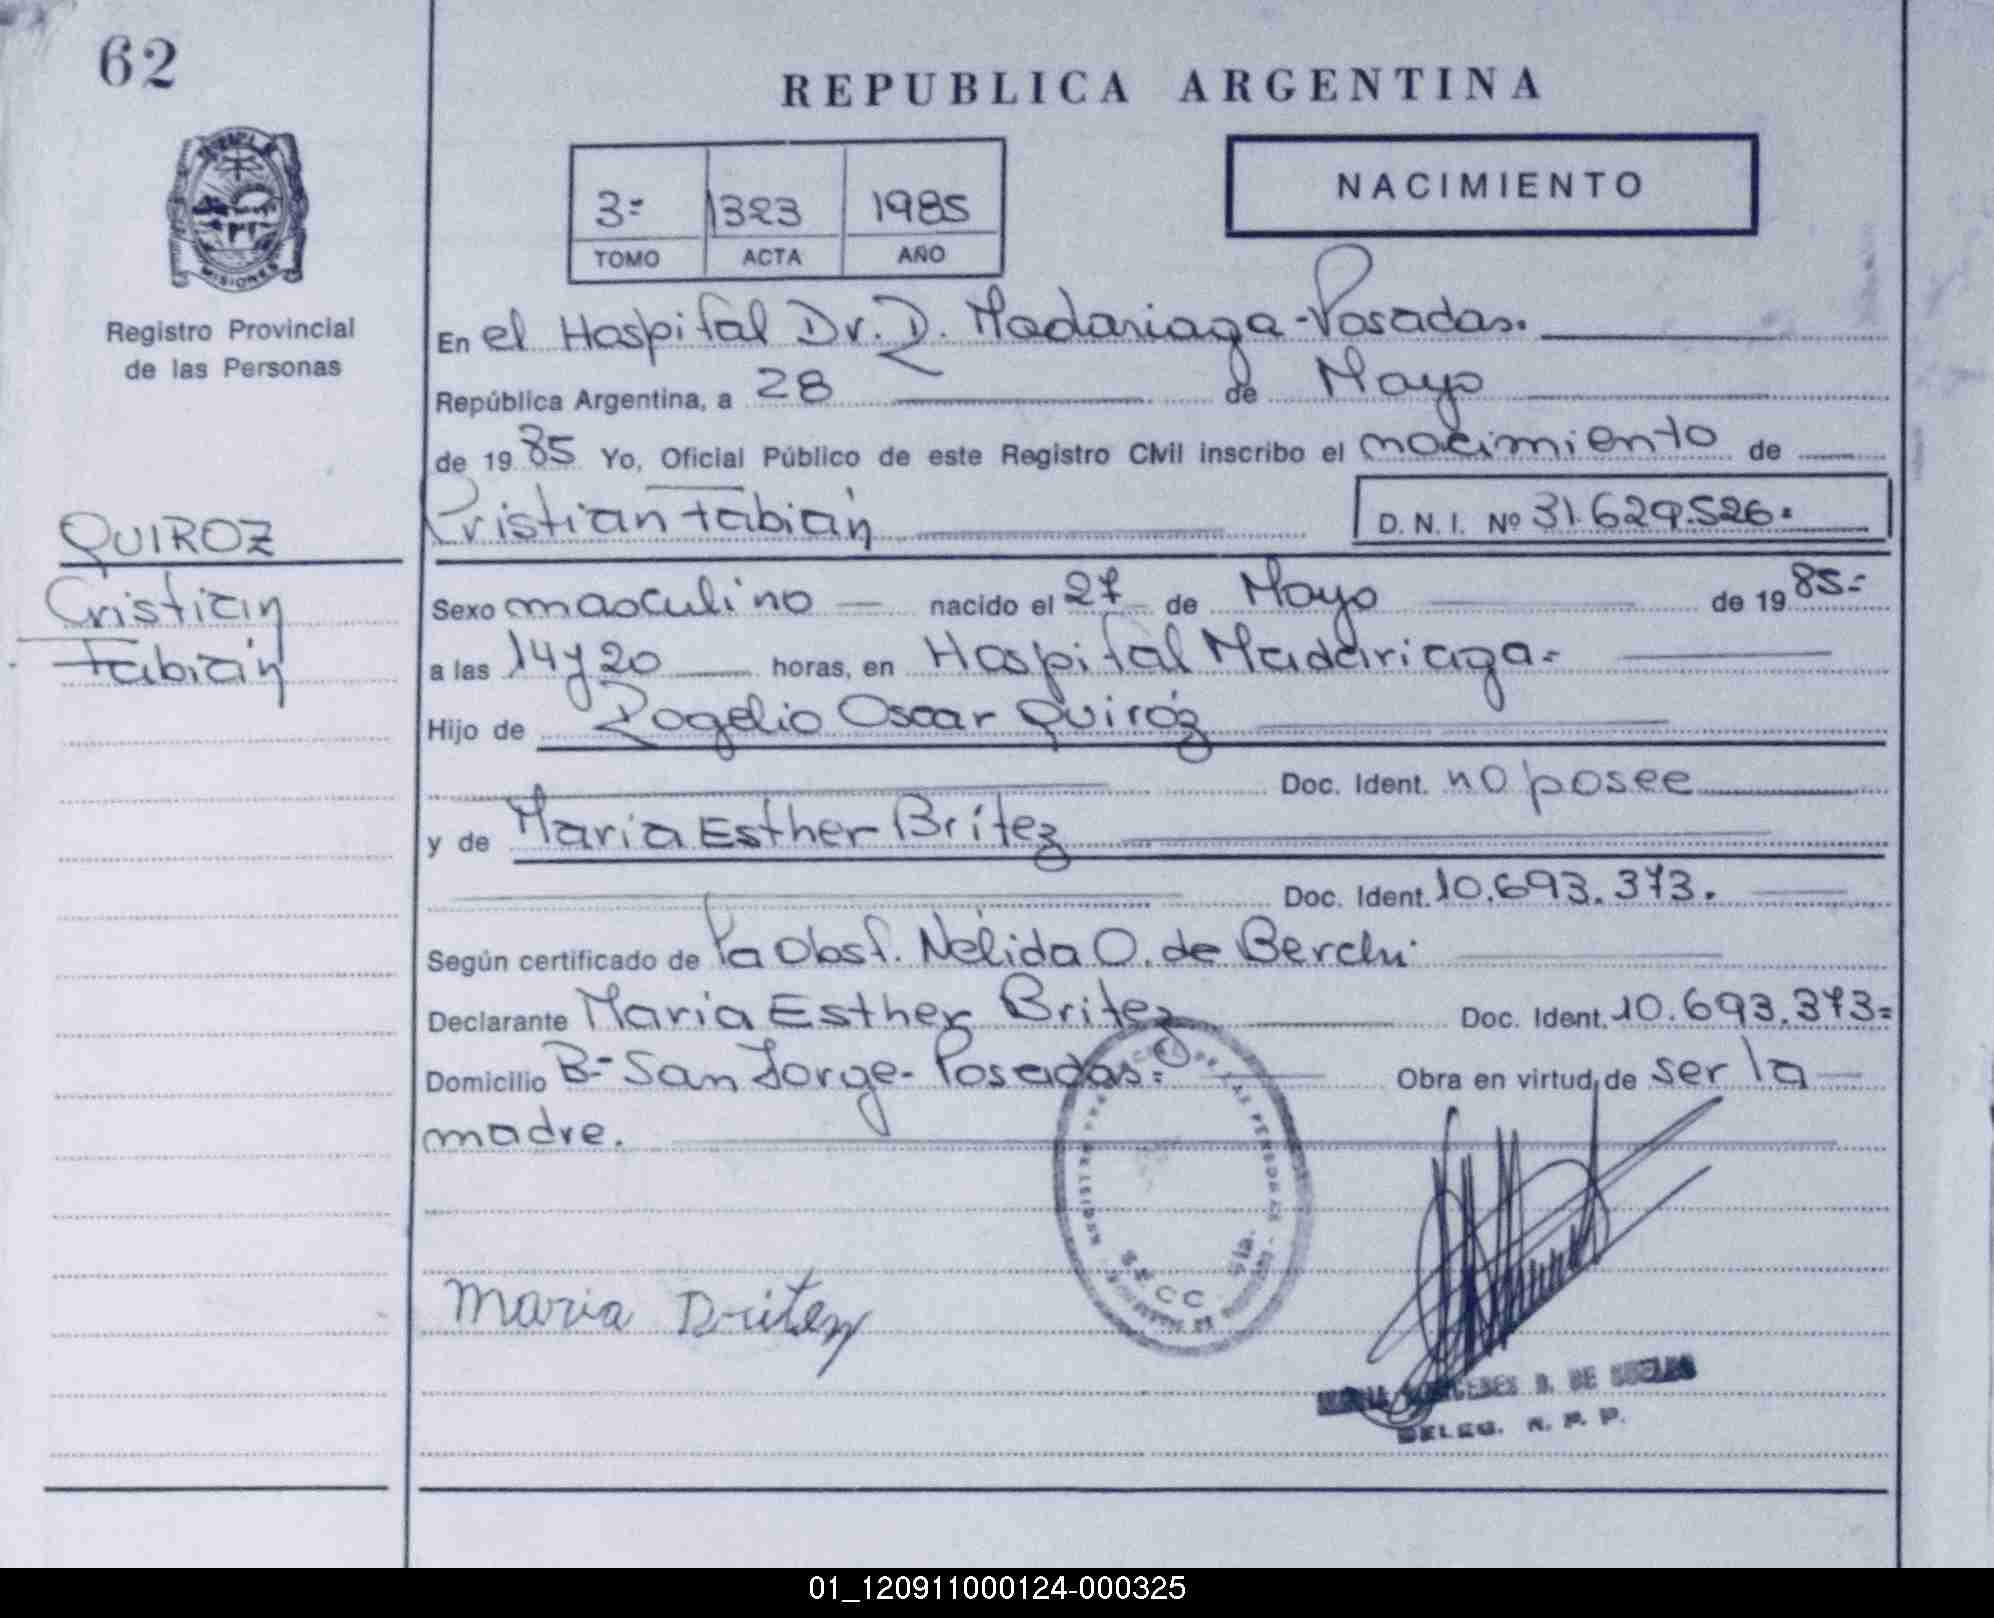 62
REPUBLICA ARGENTINA
MISIONES
Registro Provincial
de las Personas
3= 1323 1985
TOMO ACTA AÑO
NACIMIENTO
En el Hospital Dr. R. Madariaga - Posadas.
República Argentina, a 28 de Mayo
de 1985 Yo, Oficial Público de este Registro Civil inscribo el nacimiento de
Cristian Fabián D. N. I. Nº 31.629.526.
QUIROZ
Cristian
Fabián
Sexo masculino nacido el 27 de Mayo de 1985=
a las 14 y 20 horas, en Hospital Madariaga=
Hijo de Rogelio Oscar Quiróz
Doc. Ident. no posee
y de Maria Esther Brítez
Doc. Ident. 10.693.373.
Según certificado de la Obst. Nélida O. de Berchi
Declarante Maria Esther Britez Doc. Ident. 10.693.373=
Domicilio Bº San Jorge - Posadas= Obra en virtud de ser la
madre.
SECC
Maria Britez
B. DE
DELEG. R. P. P.
01_120911000124-000325